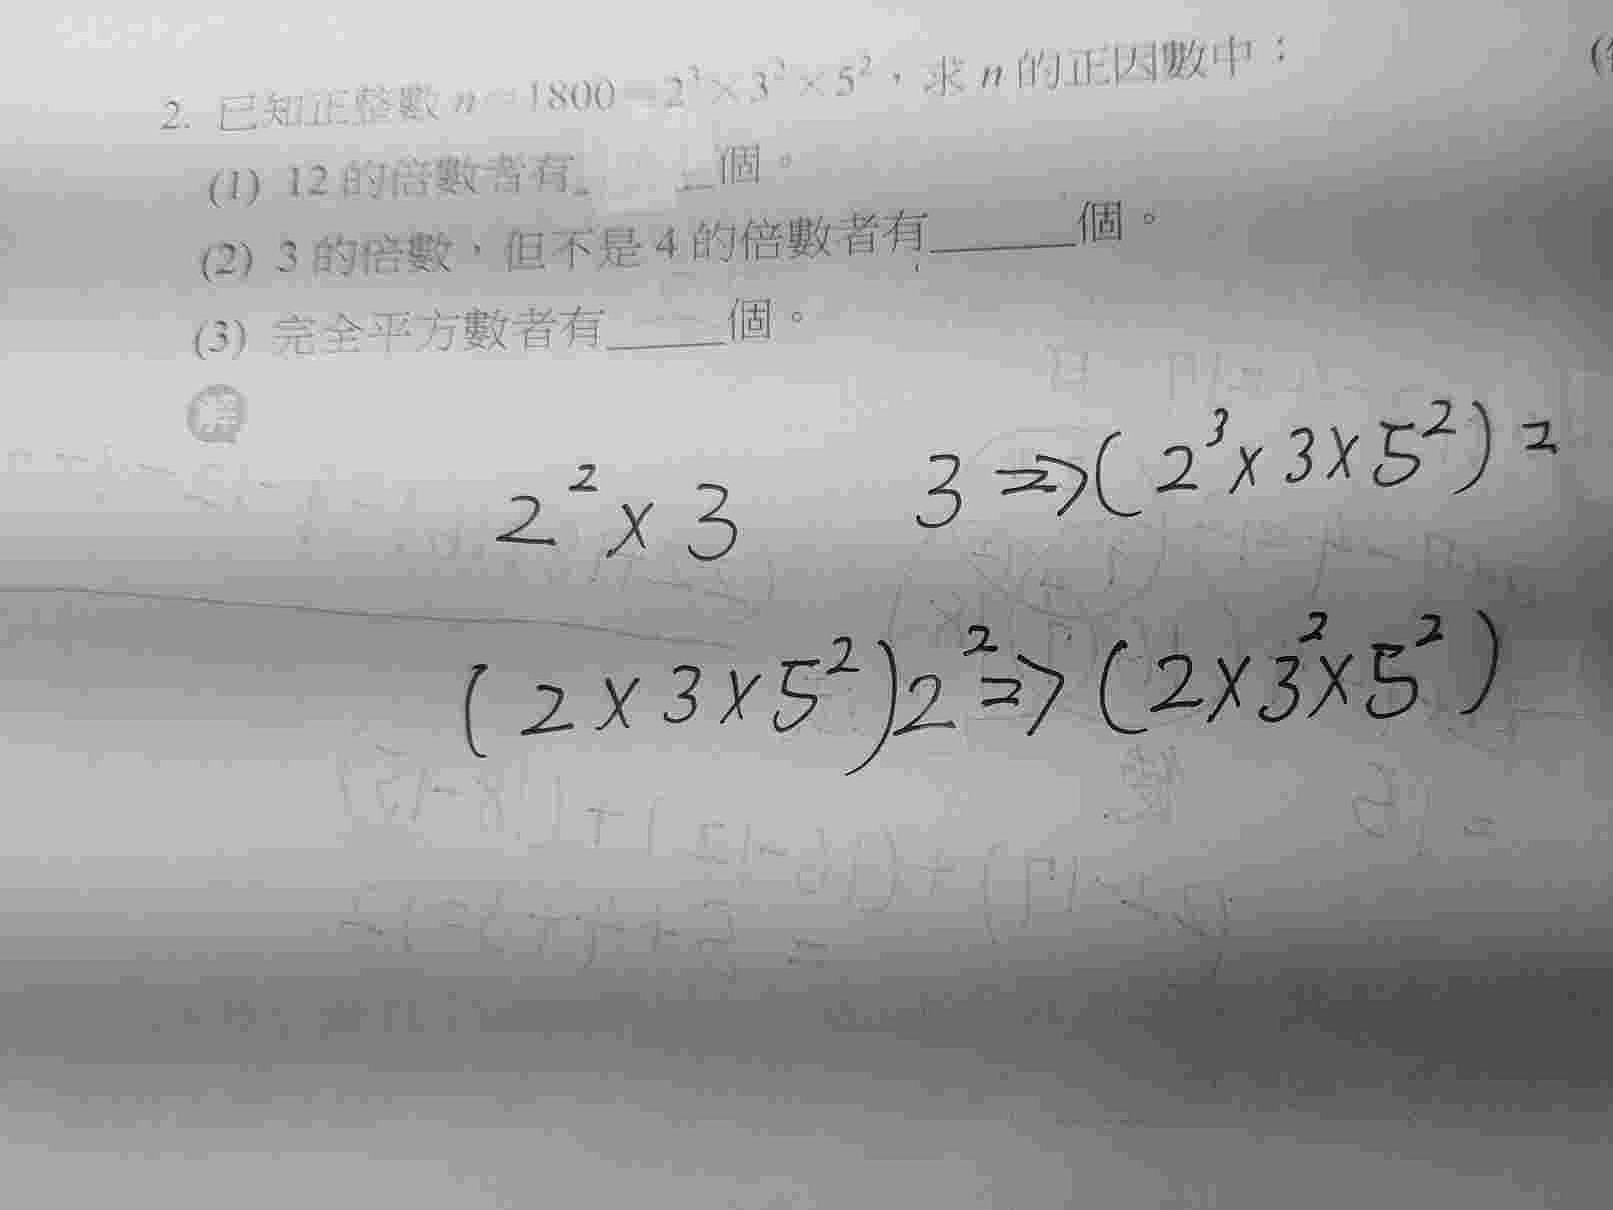 2. 已知正整數 n=1800=2³×3²×5²，求 n 的正因數中：
(1) 12 的倍數者有____個。
(2) 3 的倍數，但不是 4 的倍數者有______個。
(3) 完全平方數者有_____個。
解
2² × 3 3 ⇒ (2³ × 3 × 5²) =
(2 × 3 × 5²)2² ⇒ (2 × 3² × 5²)